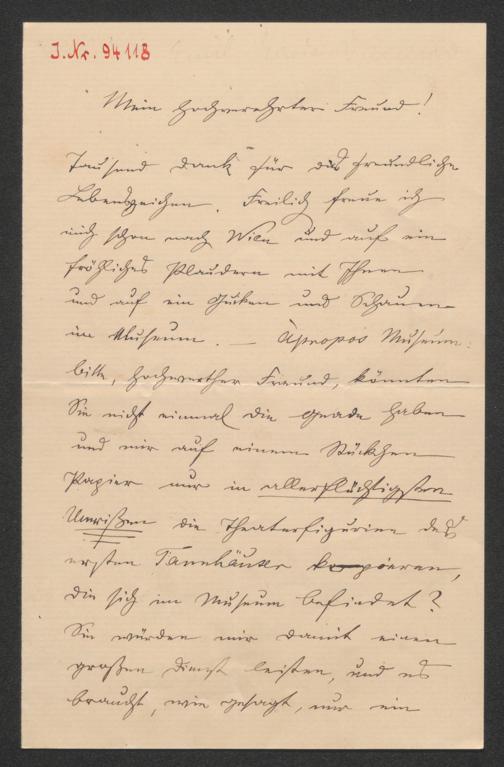 J. Nr. 94118
Mein hochverehrter Freund!
Tausend Dank für das freundliche
Lebenszeichen. Freilich freue ich
mich schon nach Wien und auf ein
fröhliches Plaudern mit Ihnen
und auf ein Gucken und Schauen
im Museum. – Apropos Museum:
bitte, hochwerther Freund, könnten
Sie nicht einmal die Gnade haben
und mir auf einem Stückchen
Papier nur in allerflüchtigsten
Umrißen die Theaterfigurine des
ersten Tannhäuser kopieren,
die sich im Museum befindet?
Sie würden mir damit einen
großen Dienst leisten, und es
braucht, wie gesagt, nur ein